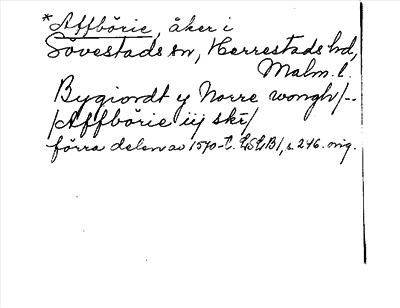 *Affbörie, åker i
Sövestads sn, Herrestads hd,
Malm. l.
Bygiordt y Norre wongh/--
/Affbörie iij skr/
förra delen av 1570-t. LSLB1, s. 246. orig.